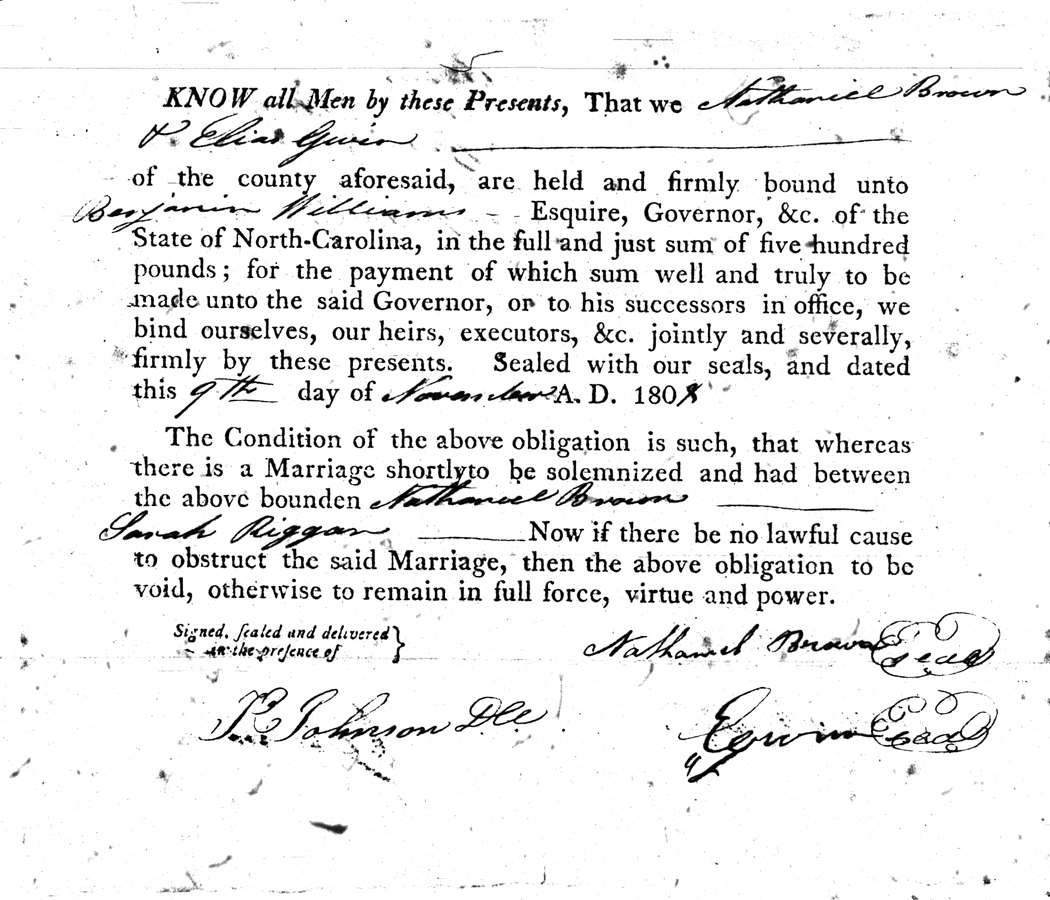 KNOW all Men by these Presents, That we Nathaniel Brown
& Elias Gwin
of the county aforesaid, are held and firmly bound unto
Benjamin Williams Esquire, Governor, &c. of the
State of North-Carolina, in the full and just sum of five hundred
pounds; for the payment of which sum well and truly to be
made unto the said Governor, or to his successors in office, we
bind ourselves, our heirs, executors, &c. jointly and severally,
firmly by these presents. Sealed with our seals, and dated
this 9th day of November A. D. 180
The Condition of the above obligation is such, that whereas
there is a Marriage shortly to be solemnized and had between
the above bounden Nathaniel Brown
Sarah Riggan Now if there be no lawful cause
to obstruct the said Marriage, then the above obligation to be
void, otherwise to remain in full force, virtue and power.
Signed, sealed and delivered
in the presence of
Nathaniel Brown Seal
Johnson
Seal